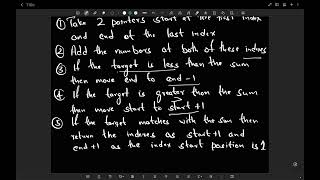 ① Take 2 pointers start at the first index
and end at the last index
② Add the numbers at both of these indices
③ If the target is less than the sum
then move end to end-1
④ If the target is greater than the sum
then move start to start+1
⑤ If the target matches with the sum then
return the indexes as start+1 and
end+1 as the index start position is 1